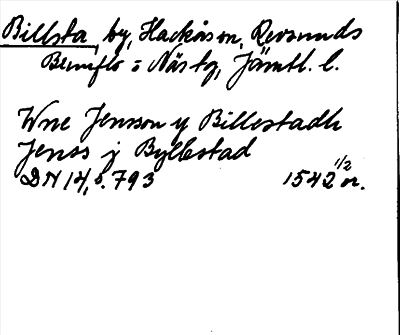 Billsta, by, Hackås sn, Revsunds
Brunflo o Näs tg, Jämtl. l.
Wne Jensson y Billestadh
Jenss j Byllestad
DN 14, s. 793 1542 1/2 or.